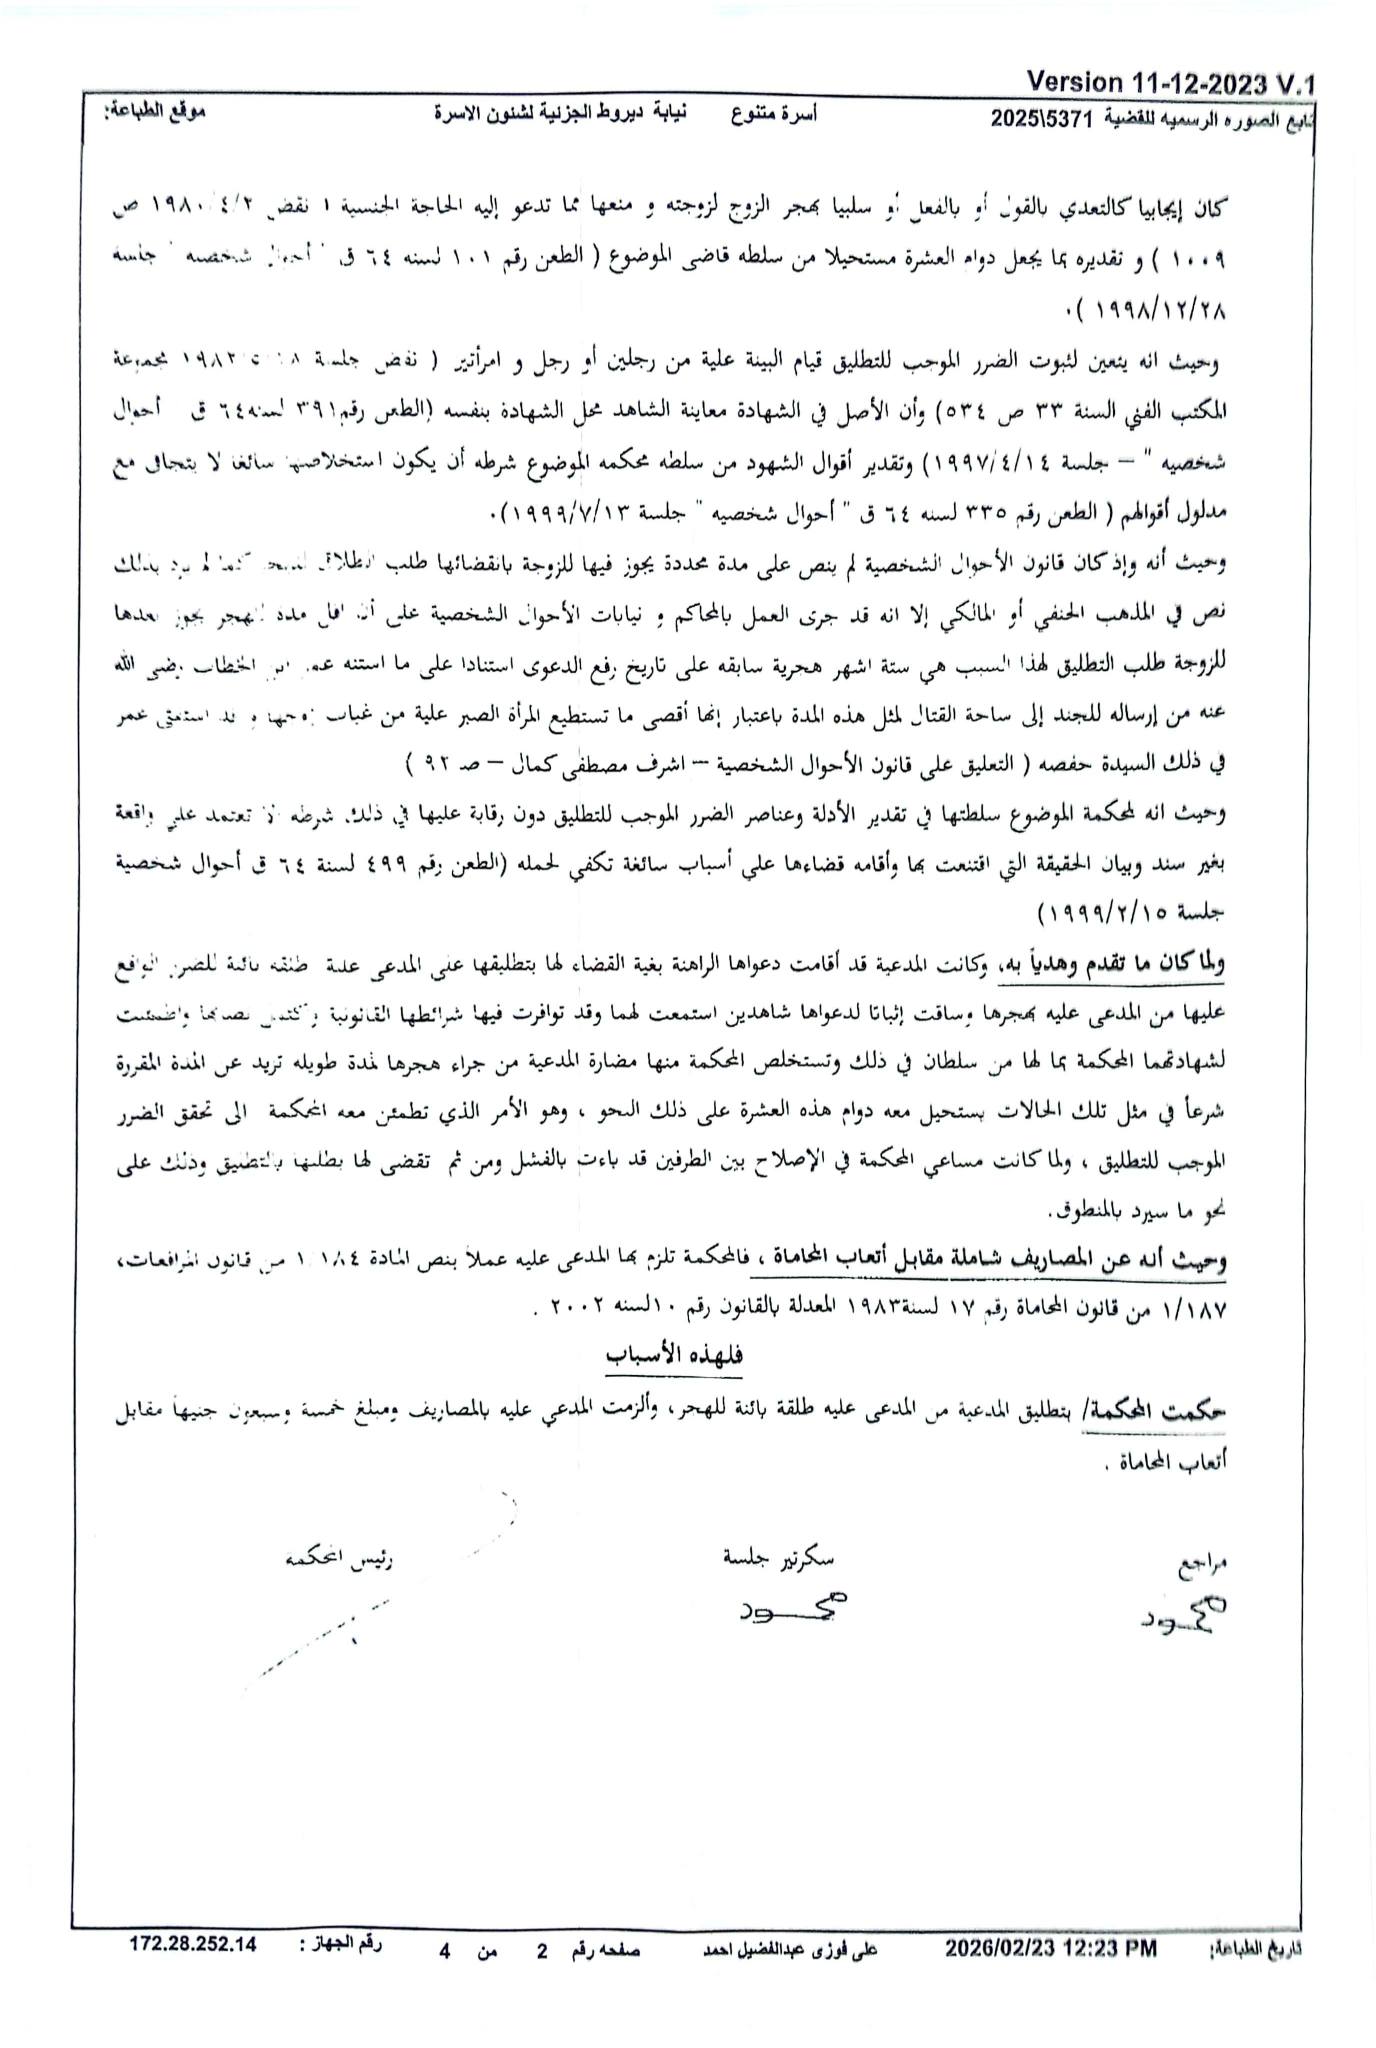 Version 11-12-2023 V.1
تابع الصوره الرسميه للقضية 5371\2025 أسرة متنوع نيابة ديروط الجزئية لشئون الاسرة موقع الطباعة:
كان إيجابيا كالتعدي بالقول أو بالفعل أو سلبيا بهجر الزوج لزوجته و منعها مما تدعو إليه الحاجة الجنسية نقض ٢/٤/١٩٨٠ ص
١٠٠٩ ) و تقديره بما يجعل دوام العشرة مستحيلا من سلطه قاضى الموضوع ( الطعن رقم ١٠١ لسنه ٦٤ ق " أحوال شخصيه " جلسه
٢٨/١٢/١٩٩٨ ).
وحيث انه يتعين لثبوت الضرر الموجب للتطليق قيام البينة علية من رجلين أو رجل و امرأتير ( نقض جلسة مجموعة
المكتب الفني السنة ٣٣ ص ٥٣٤) وأن الأصل في الشهادة معاينة الشاهد محل الشهادة بنفسه (الطعن رقم٣٩١ لسنه٦٤ ق أحوال
شخصيه " – جلسة ١٩٩٧/٤/١٤) وتقدير أقوال الشهود من سلطه محكمه الموضوع شرطه أن يكون استخلاصها سائغا لا يتجافى مع
مدلول أقوالهم ( الطعن رقم ٣٣٥ لسنه ٦٤ ق " أحوال شخصيه " جلسة ١٩٩٩/٧/١٣).
وحيث أنه وإذ كان قانون الأحوال الشخصية لم ينص على مدة محددة يجوز فيها للزوجة بانقضائها طلب الطلاق للهجر كما لم يرد بذلك
نص في المذهب الحنفي أو المالكي إلا انه قد جرى العمل بالمحاكم و نيابات الأحوال الشخصية على أن اقل مدد الهجر يجوز بعدها
للزوجة طلب التطليق لهذا السبب هي ستة اشهر هجرية سابقه على تاريخ رفع الدعوى استنادا على ما استنه عمر ابن الخطاب رضى الله
عنه من إرساله للجند إلى ساحة القتال لمثل هذه المدة باعتبار إنها أقصى ما تستطيع المرأة الصبر علية من غياب زوجها و قد استفتى عمر
في ذلك السيدة حفصه ( التعليق على قانون الأحوال الشخصية – اشرف مصطفى كمال – صـ ٩٢ )
وحيث انه لمحكمة الموضوع سلطتها في تقدير الأدلة وعناصر الضرر الموجب للتطليق دون رقابة عليها في ذلك شرطه ألا تعتمد علي واقعة
بغير سند وبيان الحقيقة التي اقتنعت بها وأقامه قضاءها علي أسباب سائغة تكفي لحمله (الطعن رقم ٤٩٩ لسنة ٦٤ ق أحوال شخصية
جلسة ١٩٩٩/٢/١٥)
ولما كان ما تقدم وهدياً به، وكانت المدعية قد أقامت دعواها الراهنة بغية القضاء لها بتطليقها على المدعى عليه طلقه بائنة للضرر الواقع
عليها من المدعى عليه بهجرها وساقت إثباتا لدعواها شاهدين استمعت لهما وقد توافرت فيها شرائطها القانونية واكتمل نصابها واطمئنت
لشهادتهما المحكمة بما لها من سلطان في ذلك وتستخلص المحكمة منها مضارة المدعية من جراء هجرها لمدة طويله تزيد عن المدة المقررة
شرعاً في مثل تلك الحالات يستحيل معه دوام هذه العشرة على ذلك النحو ، وهو الأمر الذي تطمئن معه المحكمة الى تحقق الضرر
الموجب للتطليق ، ولما كانت مساعي المحكمة في الإصلاح بين الطرفين قد باءت بالفشل ومن ثم تقضى لها بطلبها بالتطليق وذلك على
نحو ما سيرد بالمنطوق.
وحيث أنه عن المصاريف شاملة مقابل أتعاب المحاماة ، فالمحكمة تلزم بها المدعى عليه عملاً بنص المادة ١/١٨٤ من قانون المرافعات،
١/١٨٧ من قانون المحاماة رقم ١٧ لسنة١٩٨٣ المعدلة بالقانون رقم ١٠لسنه ٢٠٠٢ .
فلهذه الأسباب
حكمت المحكمة/ بتطليق المدعية من المدعى عليه طلقة بائنة للهجر، وألزمت المدعي عليه بالمصاريف ومبلغ خمسة وسبعون جنيهاً مقابل
أتعاب المحاماة .
مراجع سكرتير جلسة رئيس المحكمة
محمود محمود
تاريخ الطباعة: 2026/02/23 12:23 PM على فوزى عبدالفضيل احمد صفحه رقم 2 من 4 رقم الجهاز : 172.28.252.14